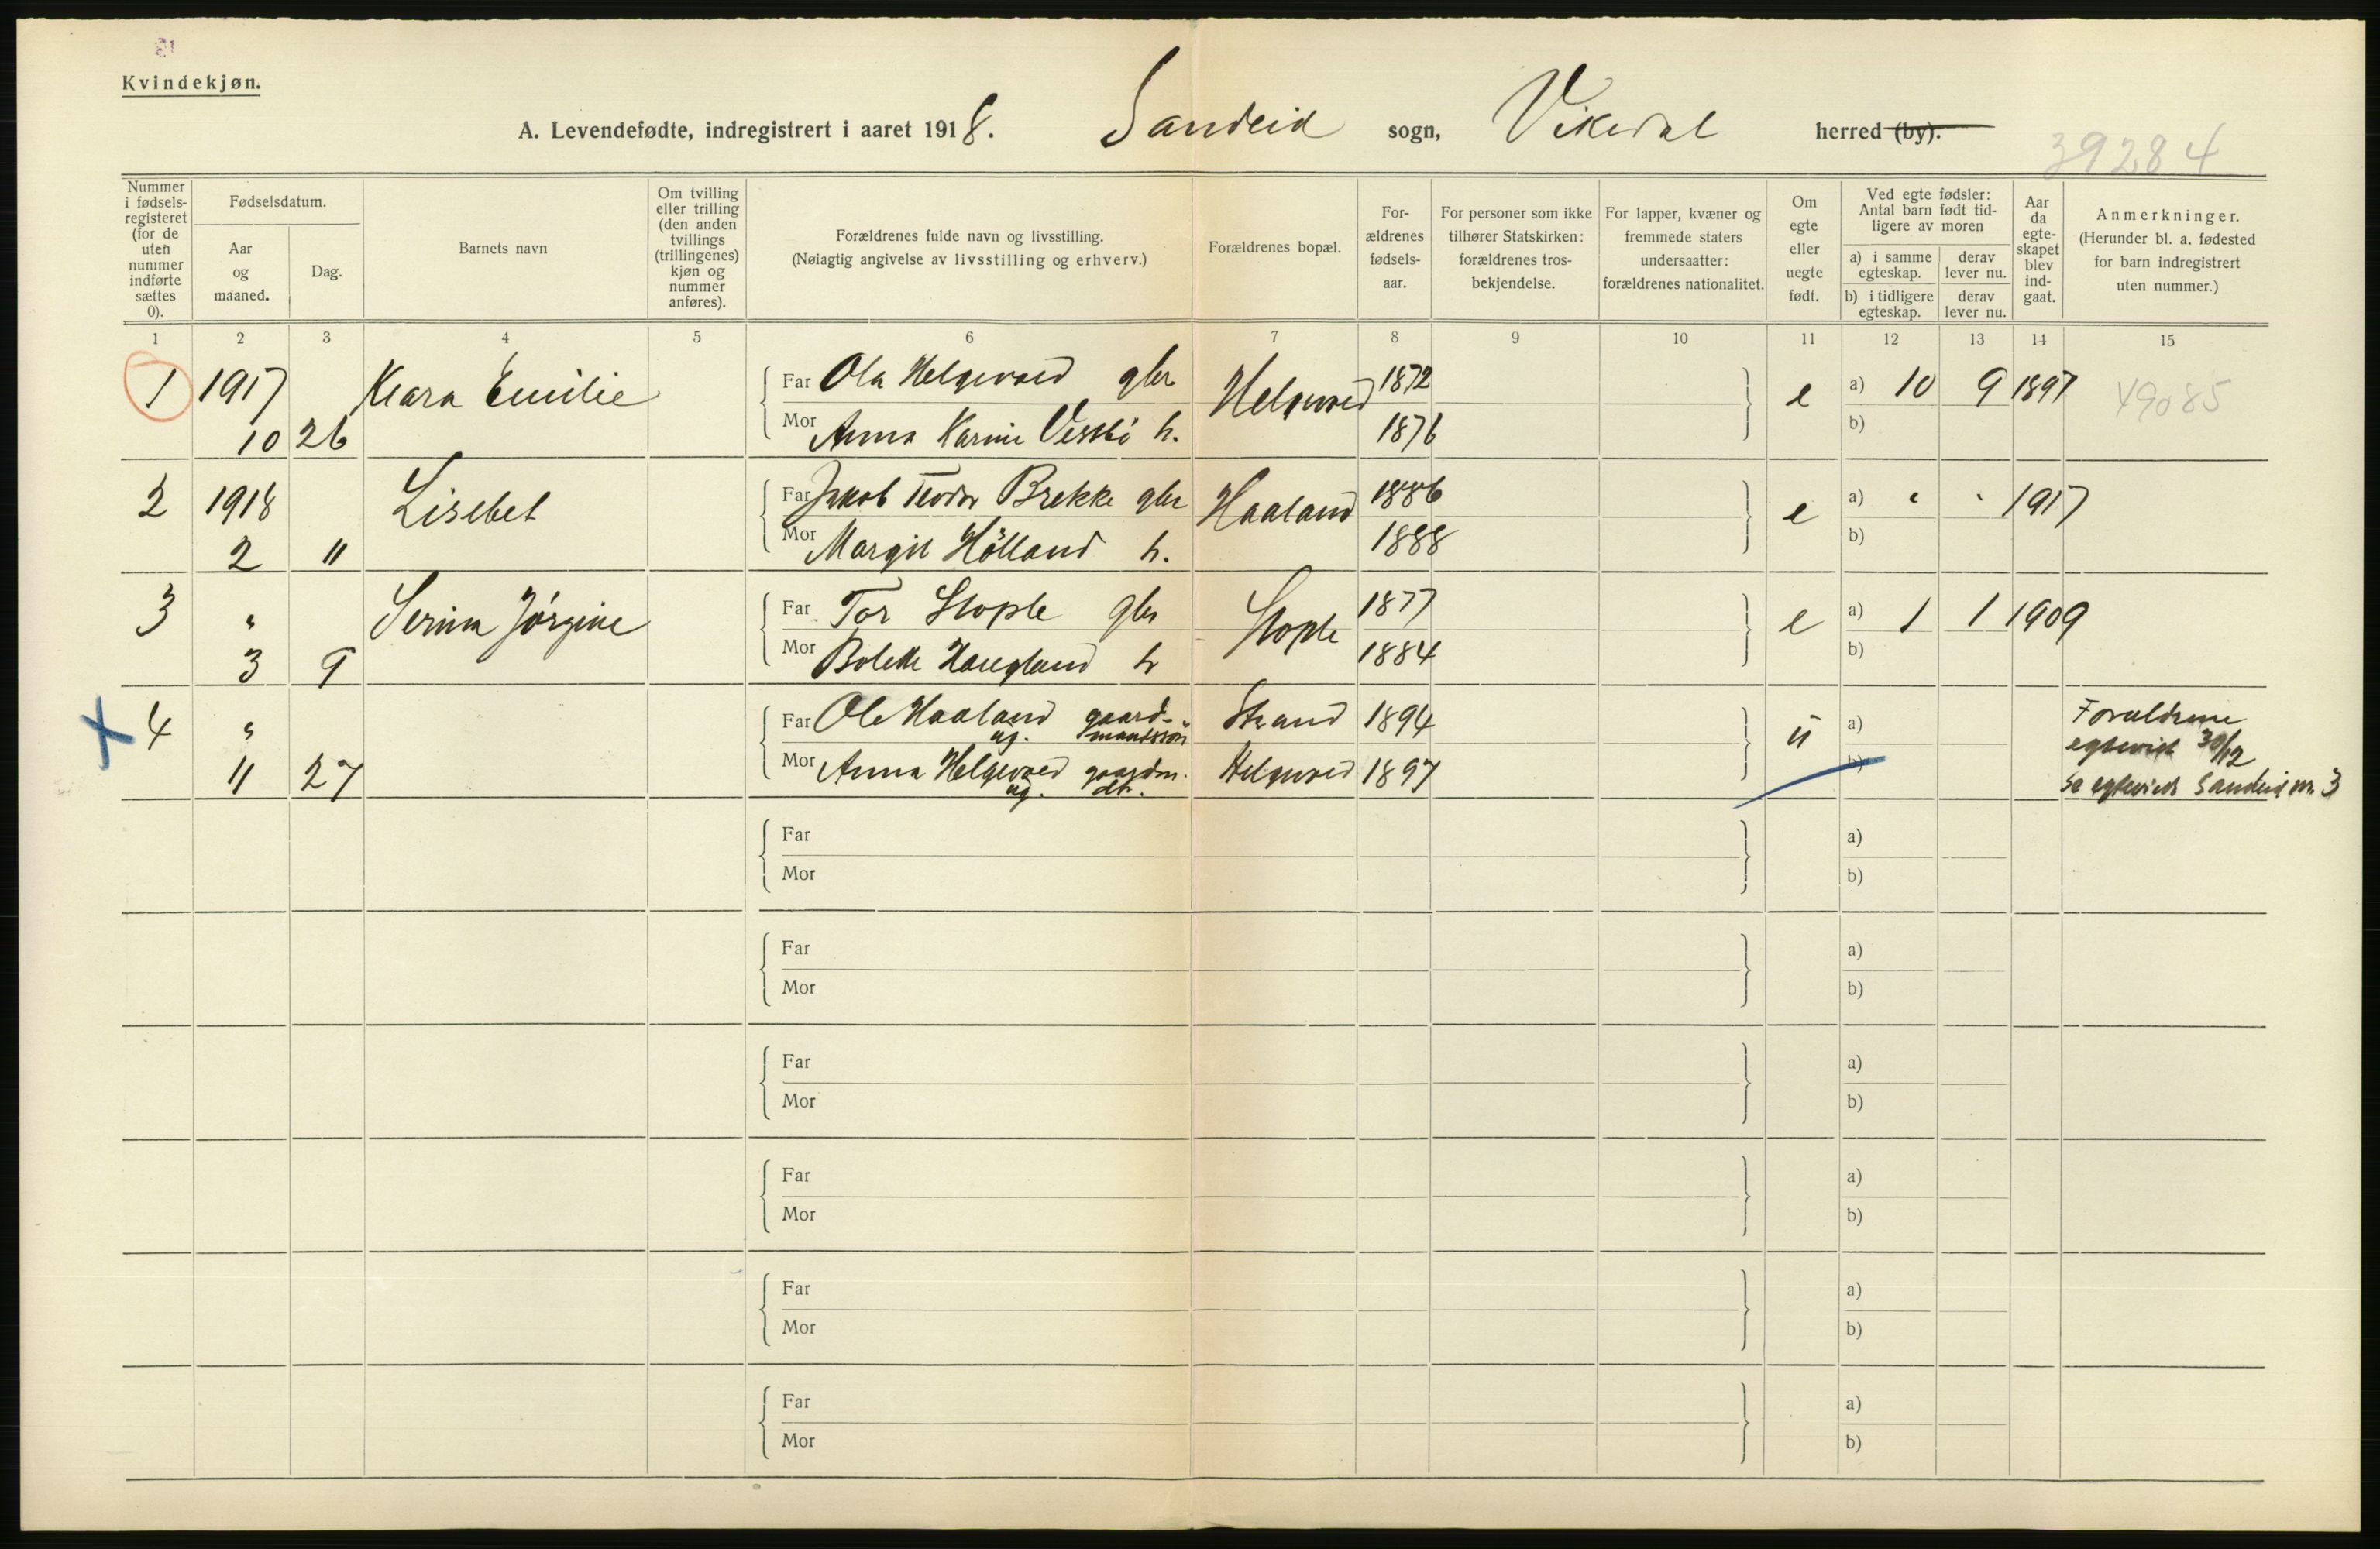 Kvindekjøn.
A. Levendefødte, indregistrert i aaret 1918. Sandeid sogn, Vikedal herred (by).
39284
Nummer i fødsels-registeret (for de uten nummer indførte sættes 0).
Fødselsdatum.
Aar og maaned.
Dag.
Barnets navn
Om tvilling eller trilling (den anden tvillings (trillingenes) kjøn og nummer anføres).
Forældrenes fulde navn og livsstilling.
(Nøiagtig angivelse av livsstilling og erhverv.)
Forældrenes bopæl.
For-ældrenes fødsels-aar.
For personer som ikke tilhører Statskirken: forældrenes tros-bekjendelse.
For lapper, kvæner og fremmede staters undersaatter: forældrenes nationalitet.
Om egte eller uegte født.
Ved egte fødsler: Antal barn født tid-ligere av moren
a) i samme egteskap.
derav lever nu.
b) i tidligere egteskap.
derav lever nu.
Aar da egte-skapet blev ind-gaat.
Anmerkninger.
(Herunder bl. a. fødested for barn indregistrert uten nummer.)
1 2 3 4 5 6 7 8 9 10 11 12 13 14 15
1 1917 Klara Emilie Far Ola Helgevold gbr Helgevold 1872 e a) 10 9 1897 49085
10 26 Mor Anna Karine Vestbö h. 1876 b)
2 1918 Lisebet Far Jakob Teodor Brekke gbr Haaland 1886 e a) " " 1917
2 11 Mor Margit Hölland h. 1888 b)
3 " Serina Jörgine Far Tor Stople gbr Stople 1877 e a) 1 1 1909
3 9 Mor Bolette Haugland h 1884 b)
4 " Far Ole Haaland ug. gaard-mandssön Strand 1894 ŭ a) Foraldrene
11 27 Mor Anna Helgevold ug. gaardm. dtr. Helgevold 1897 b) egteviet 30/12
Se egteviede Sandeid nr. 3
Far a)
Mor b)
Far a)
Mor b)
Far a)
Mor b)
Far a)
Mor b)
Far a)
Mor b)
Far a)
Mor b)